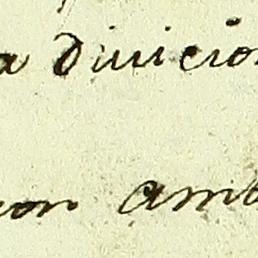 a Divicion
con amb